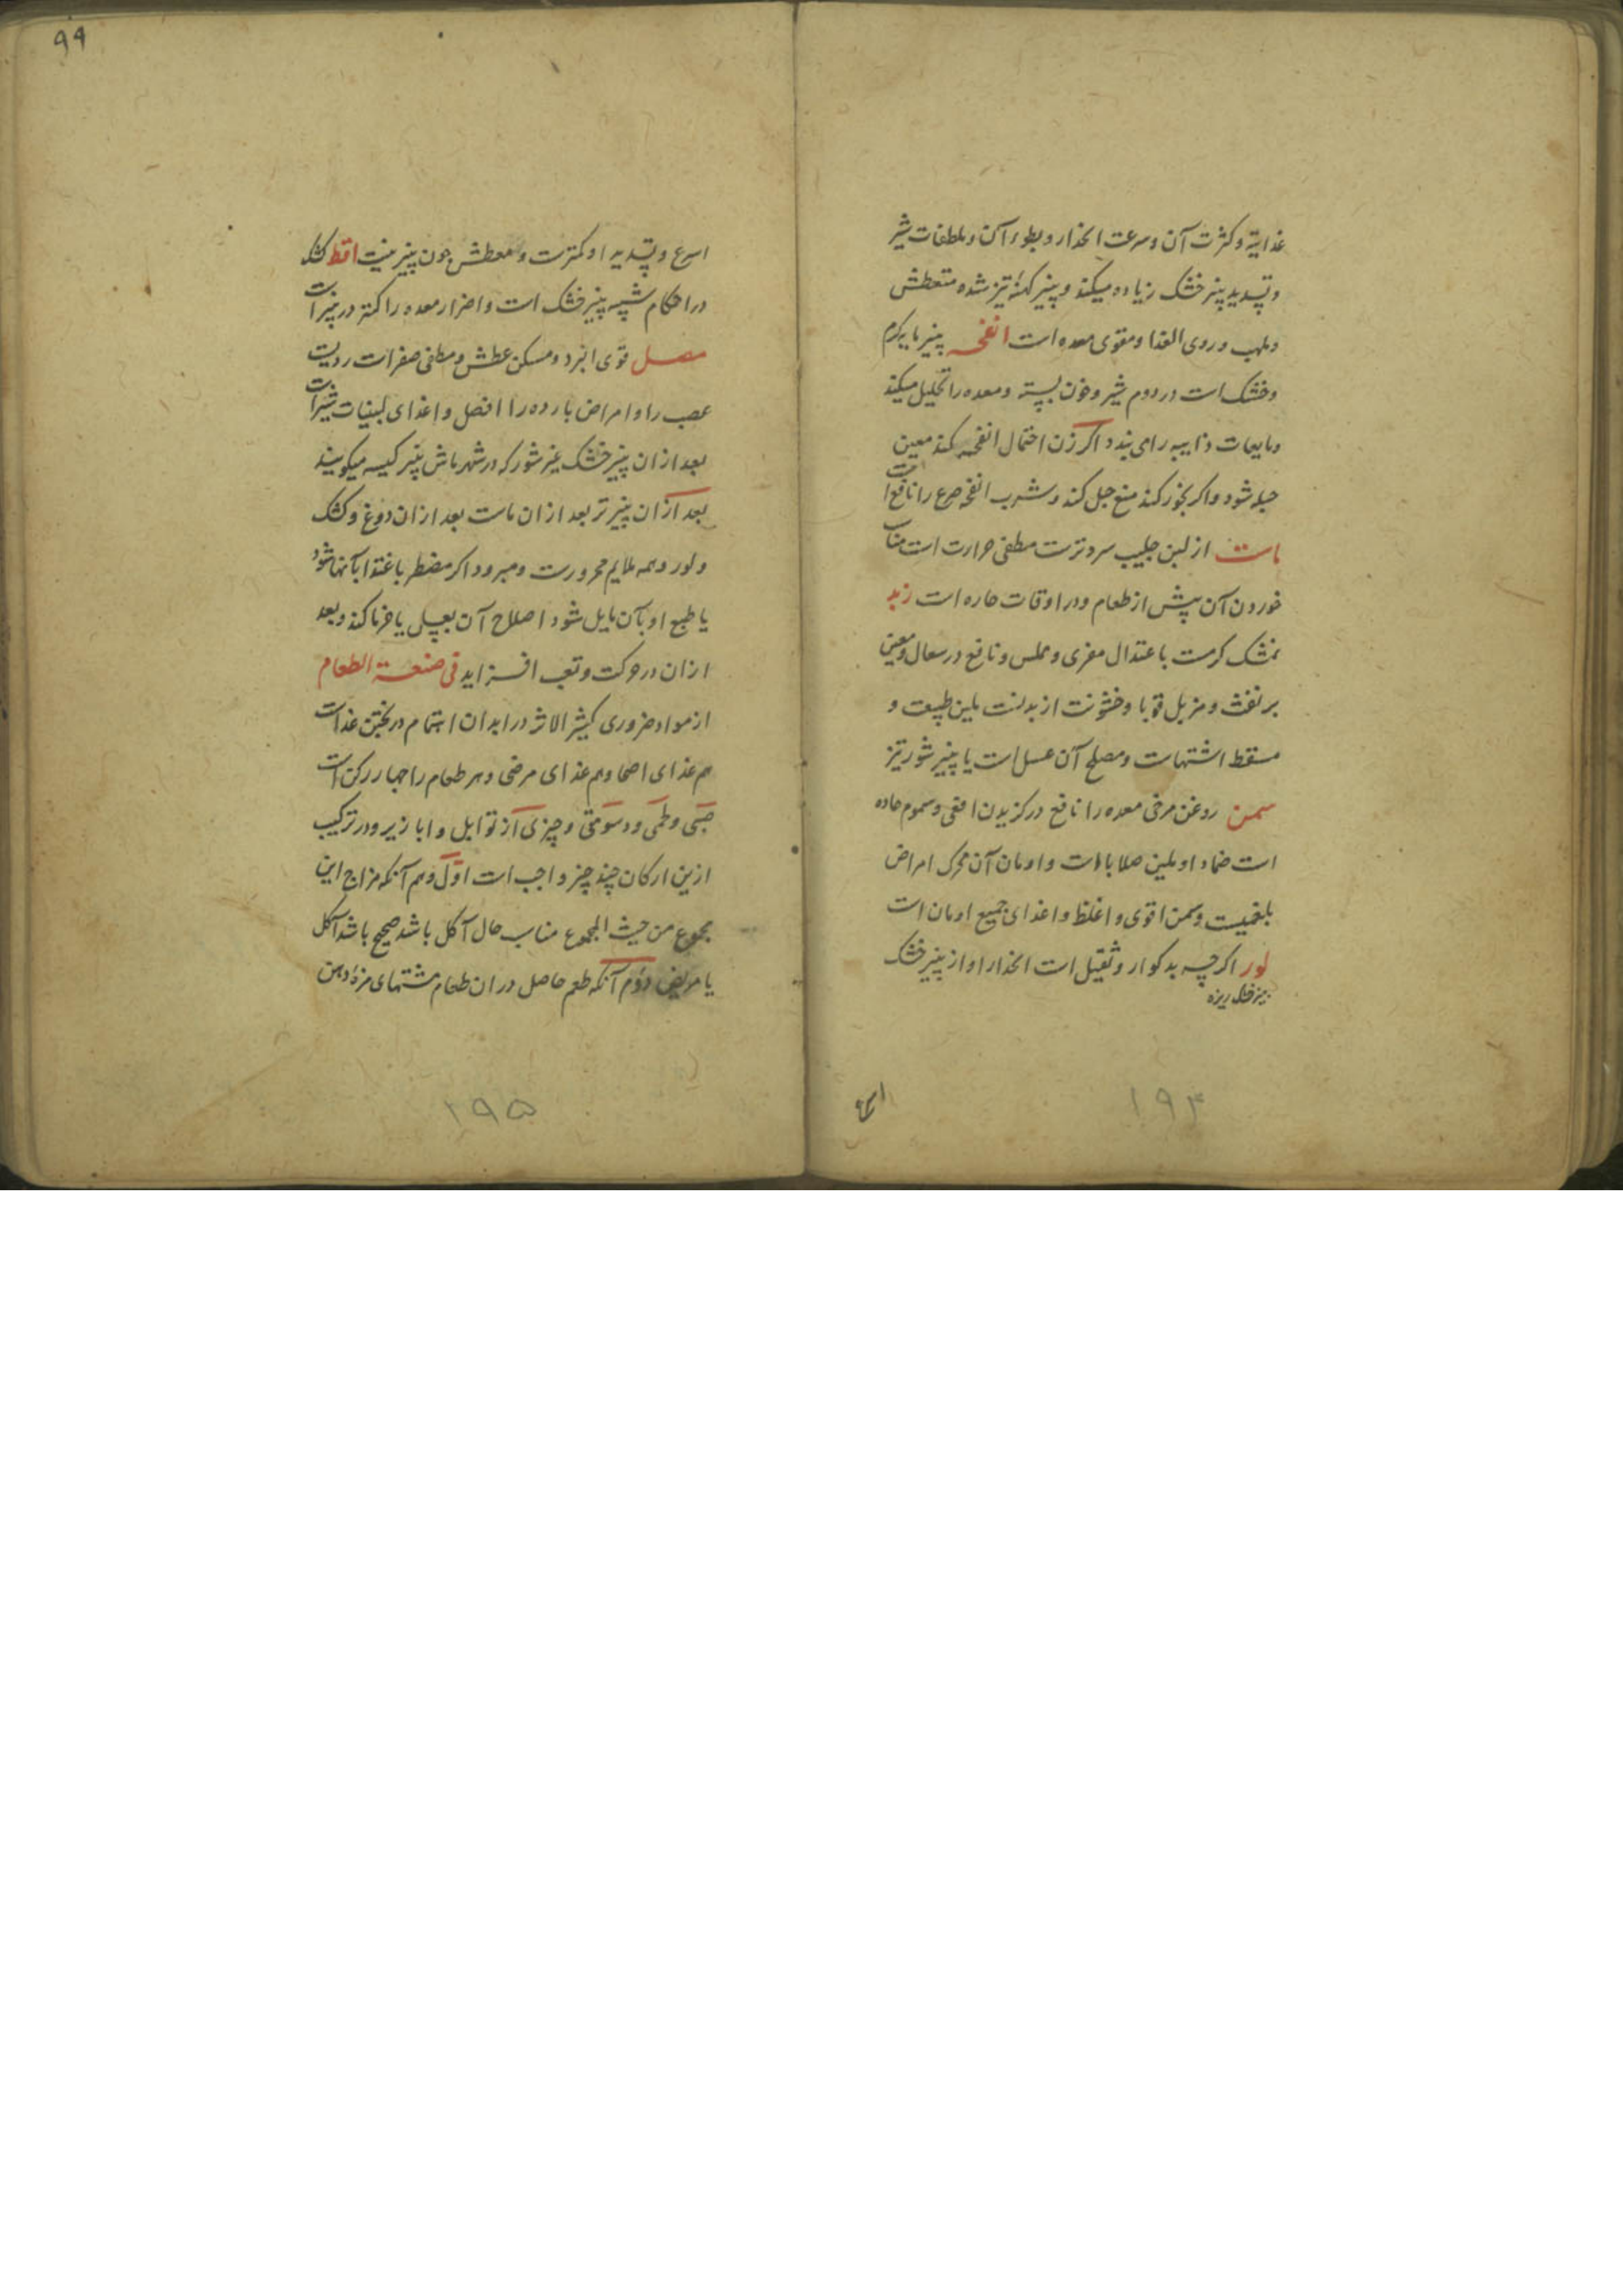 غذائیة و کثرت آن و سرعت انحدار و بطوء آن و ملطفات شیر
و تسدید پنیر خشک زیاده میکند و پنیر کهنۀ تیز شده متعطش
و ملهب و ردی الغذا و مقوی معده است انفحه پنیر مایه کرم
و خشک است در دوم شیر و خون بسته و معده را تحلیل میکند
و مایعات ذایبه را می بندد اکر زن احتمال انفحه کند معین
حبل شود و اکر بخور کند منع حبل کند و شرب انفحه صرع را نافع است
ماست از لبن حلیب سردترست مطفی حرارت است مناسب
خوردن آن پیش از طعام و در اوقات حاره است زبد
نمشک کرمست باعتدال مغری و مملس و نافع در سعال و معین
بر نفث و مزیل قوبا و خشونت از بدنست ملین طبیعت و
مسقط اشتهاست و مصلح آن عسل است یا پنیر شور تیز
سمن روغن مرخی معده را نافع در کزیدن افعی و سموم حاده
است ضماد او ملین صلابات است و ادمان آن محرک امراض
بلغمیست و سمن اقوی و اغلظ و اغذای جمیع ادهان است
لور اکرچه بدکوار و ثقیل است انحدار او از پنیر خشک
پنیر خشک ریزه
۱۹۴
اسرع
۹۹
اسرع و تسدید او کمترست و معطش چون پنیر نیست اقط کشک
در احکام شبیه پنیر خشک است و اضرار معده را کمتر در پنیر است
مصل قوی البرد و مسکن عطش و مطفی صفراست ردیست
عصب را و امراض بارده را افضل و اغذای لبنیات شیر است
بعد از ان پنیر خشک غیر شور که در شهر ماش پنیر کیسه میکویند
بعد از ان پنیر تر بعد از ان ماست بعد از ان دوغ و کشک
و لور و همه ملایم محرورست و مبرود اکر مضطر باغتذا بآنها شود
یا طبع او بآن مایل شود اصلاح آن بعسل یا خرما کند و بعد
از ان در حرکت و تعب افزاید فی صنعة الطعام
از مواد ضروری کثیر الاثر در ابدان اهتمام در پختن غذاست
هم غذای اصحا و هم غذای مرضی و هر طعام را چهار رکن است
حبی و طمی و دسومتی و چیزی از توابل و ابازیر و در ترکیب
ازین ارکان چند چیز واجب است اول و هم آنکه مزاج این
مجموع من حیث المجموع مناسب حال آکل باشد صحیح باشد آکل
یا مریض دوم آنکه طعم حاصل در ان طعام مشتهای مزۀ دهن
۱۹۵